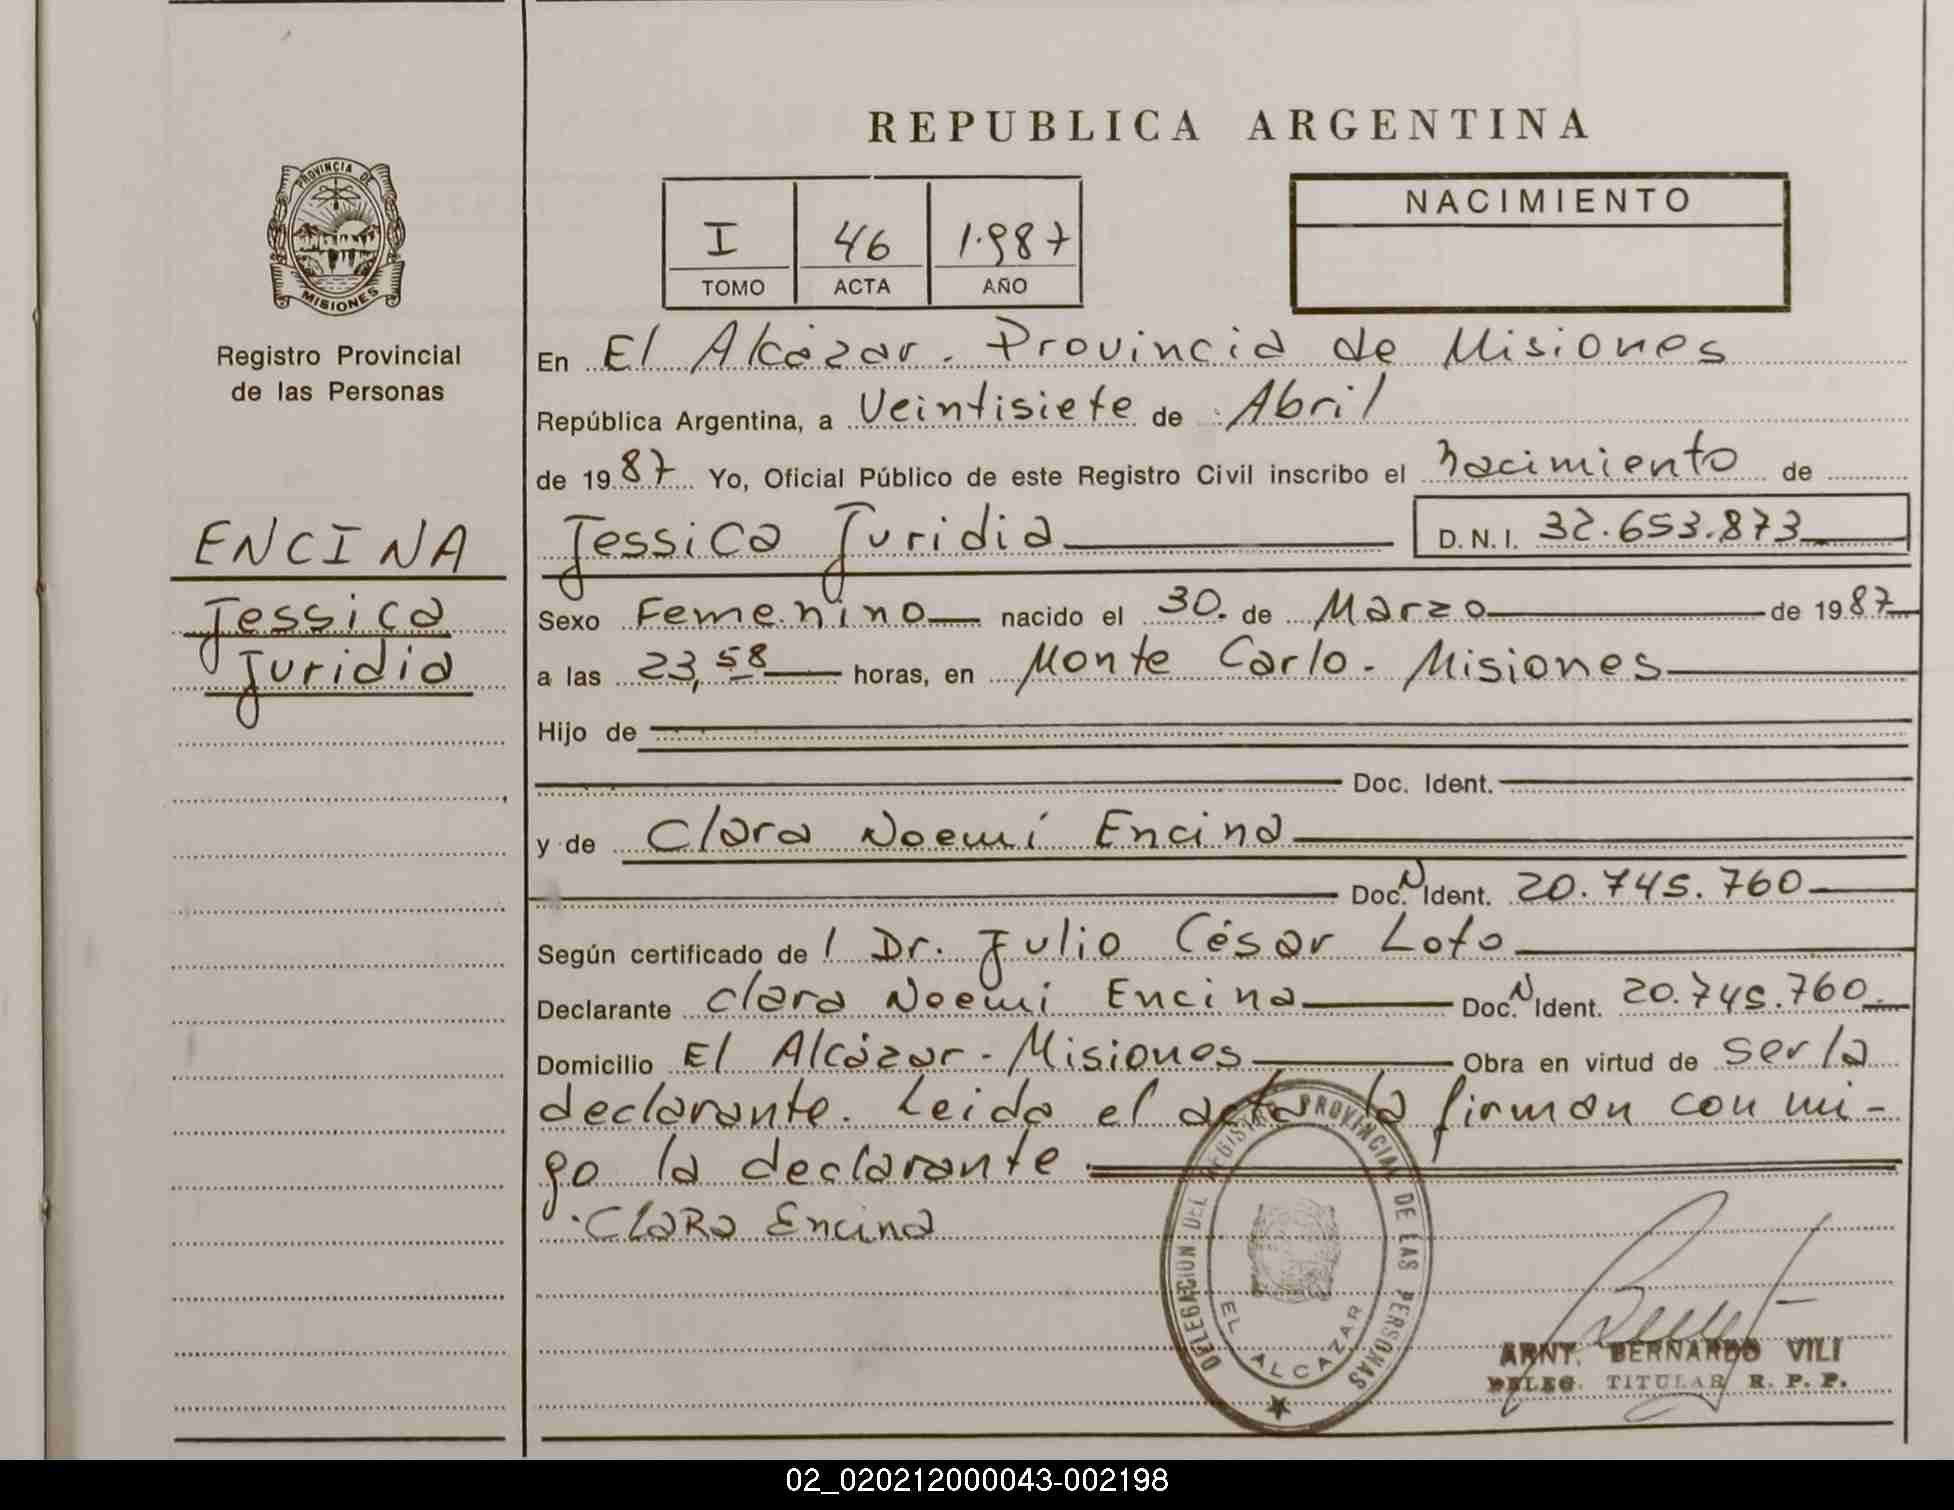 REPUBLICA ARGENTINA
PROVINCIA DE
MISIONES
Registro Provincial
de las Personas
I 46 1.987
TOMO ACTA AÑO
NACIMIENTO
En El Alcázar - Provincia de Misiones
República Argentina, a Veintisiete de Abril
de 1987 Yo, Oficial Público de este Registro Civil inscribo el nacimiento de
ENCINA
Jessica
Juridia
Jessica Juridia D.N.I. 32.653.873
Sexo Femenino nacido el 30 de Marzo de 1987
a las 23,58 horas, en Monte Carlo - Misiones
Hijo de
Doc. Ident.
y de Clara Noemí Encina
Doc. N Ident. 20.745.760
Según certificado de l Dr. Julio César Loto
Declarante Clara Noemi Encina Doc. N Ident. 20.745.760
Domicilio El Alcázar - Misiones Obra en virtud de ser la
declarante. Leida el acta la firman con mi-
go la declarante
Clara Encina
DELEGACION DEL REGISTRO PROVINCIAL DE LAS PERSONAS
EL ALCAZAR
ARNT. BERNARDO VILI
DELEG. TITULAR R. P. P.
02_020212000043-002198